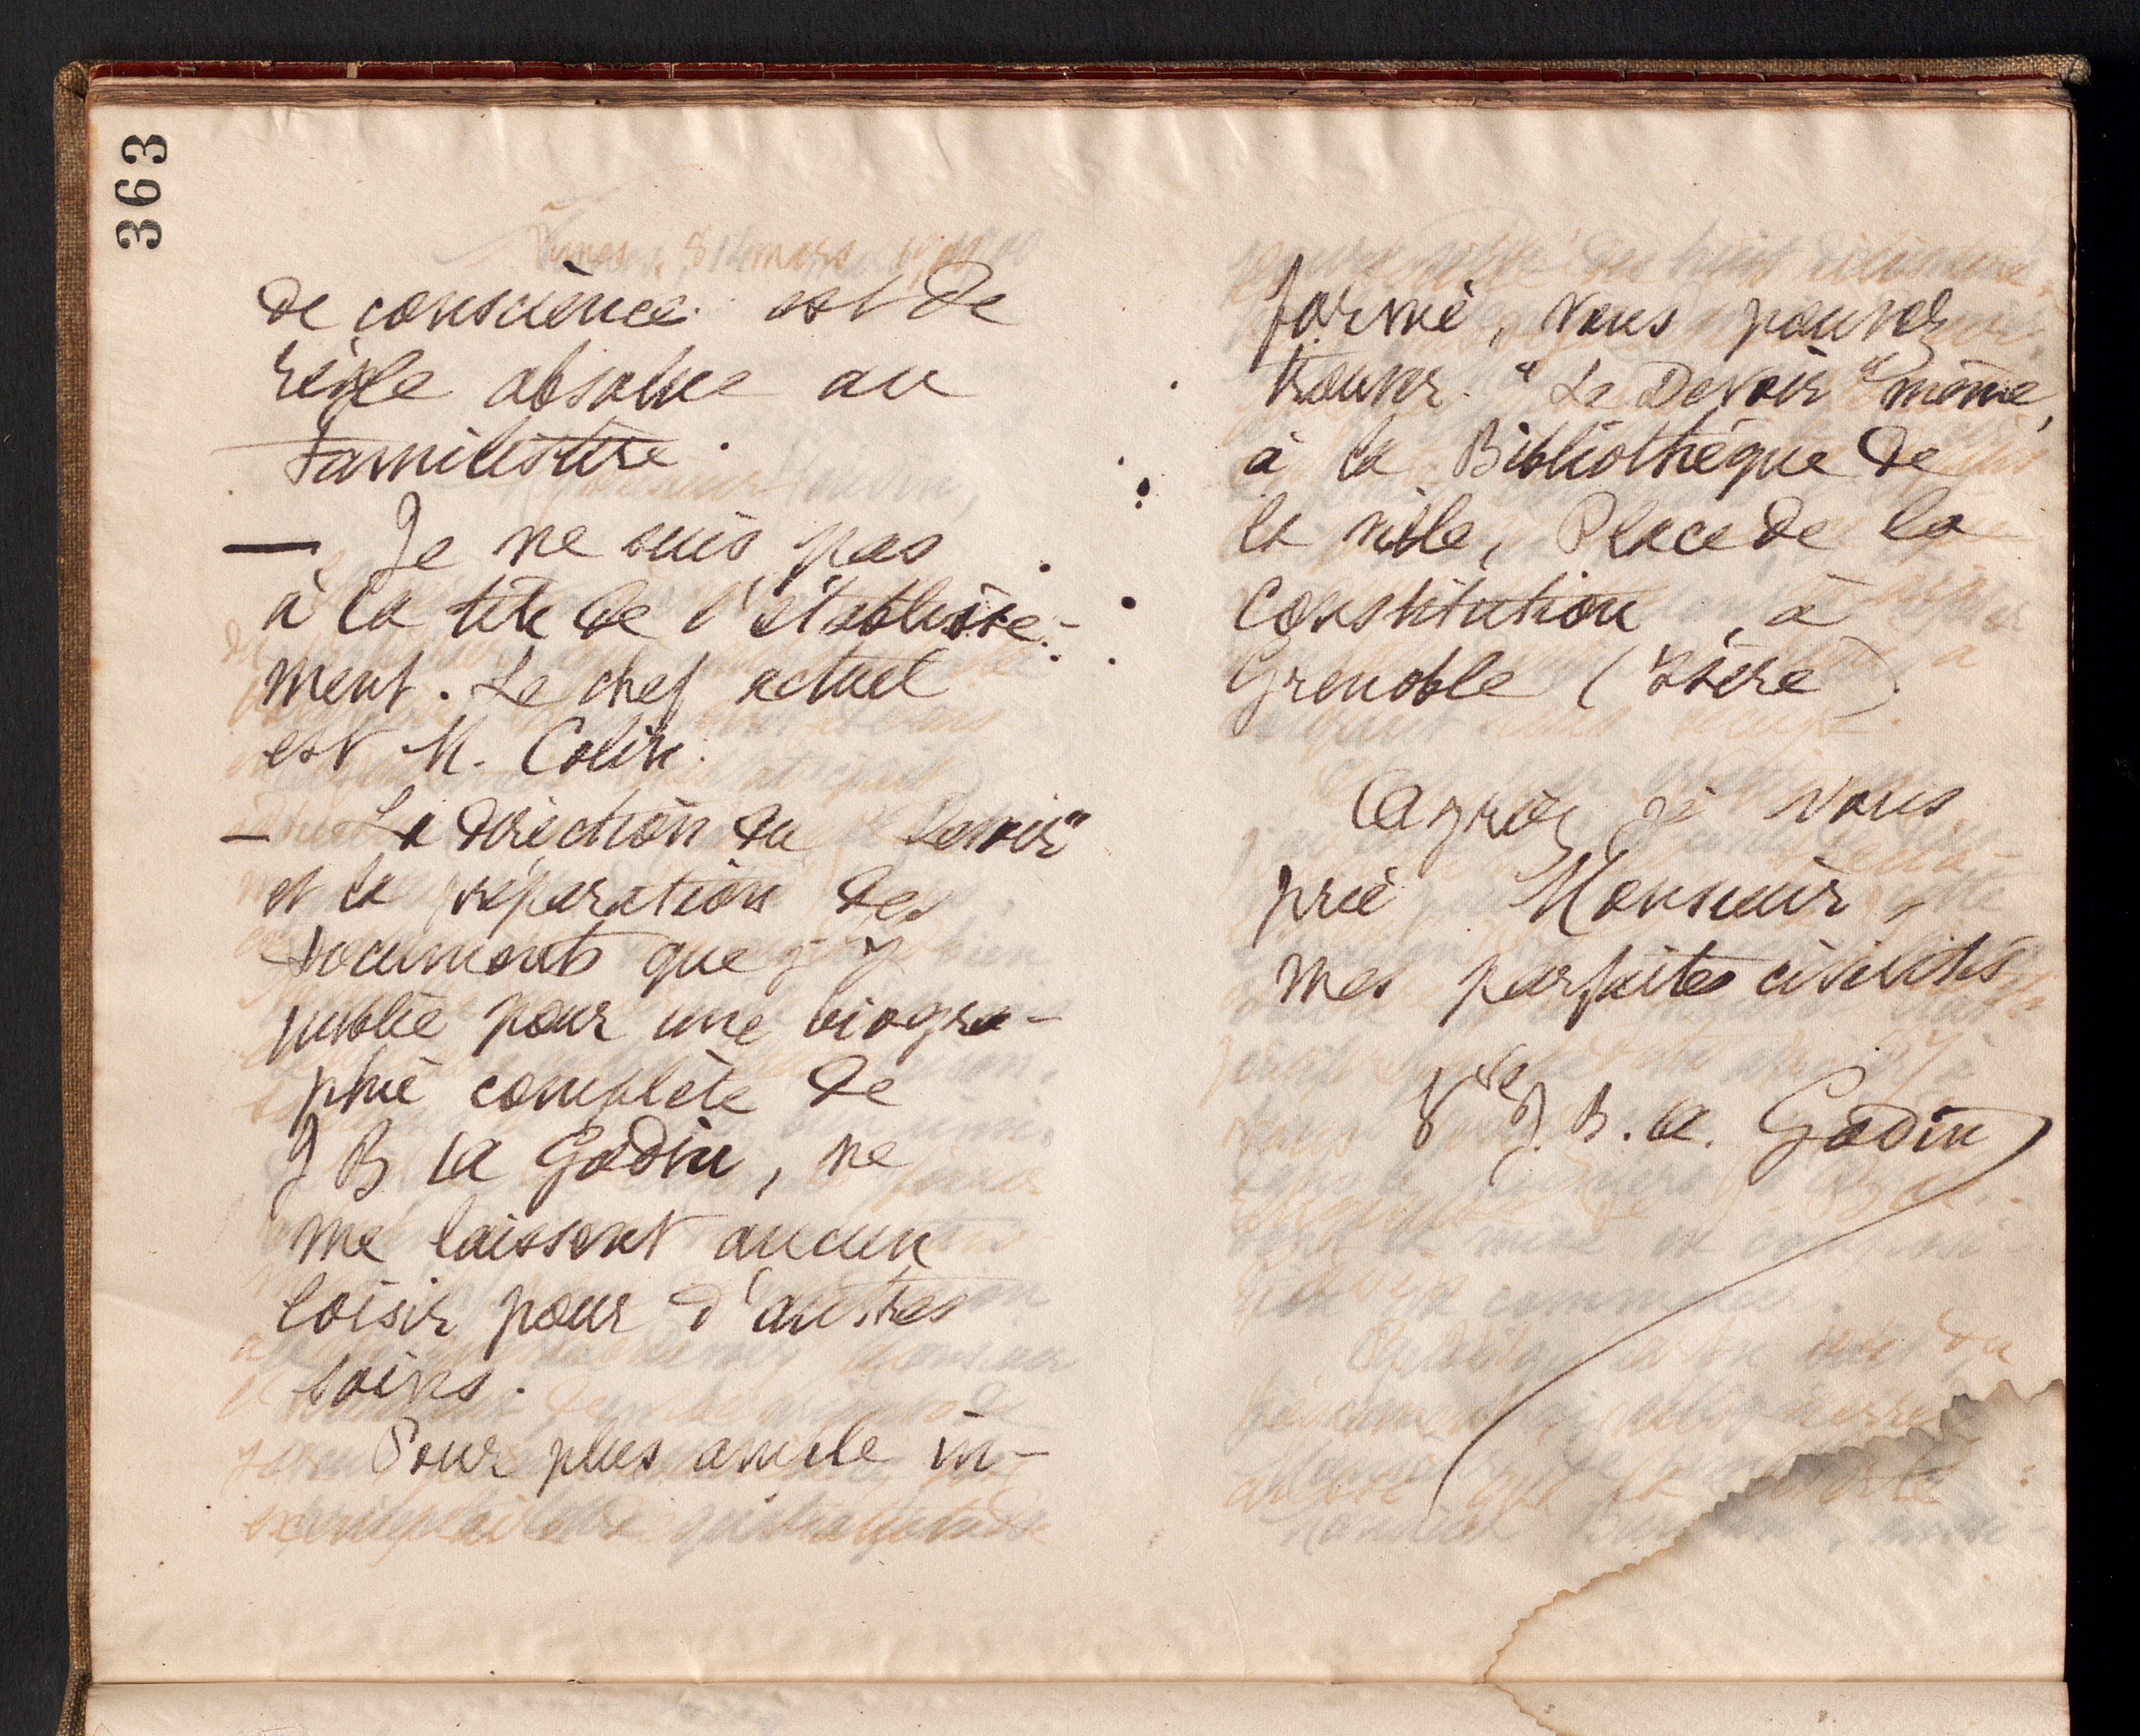 363
de conscience est de
règle absolue au
Familistère.
— Je ne suis pas
à la tête de l'établisse-
ment. Le chef actuel
est M. Colin.
— La direction du Devoir"
et la préparation des
documents que j'y
publie pour une biogra-
phie complète de
J B A Godin, ne
me laissent aucun
loisir pour d'autres
soins.
Pour plus ample in-
formé, vous pouvez
trouver "Le Devoir" même,
à la Bibliothèque de
la ville, Place de la
Constitution, à
Grenoble (Isère).
Agréez je vous
prie Monsieur,
mes parfaites civilités
Vve J. B. A. Godin